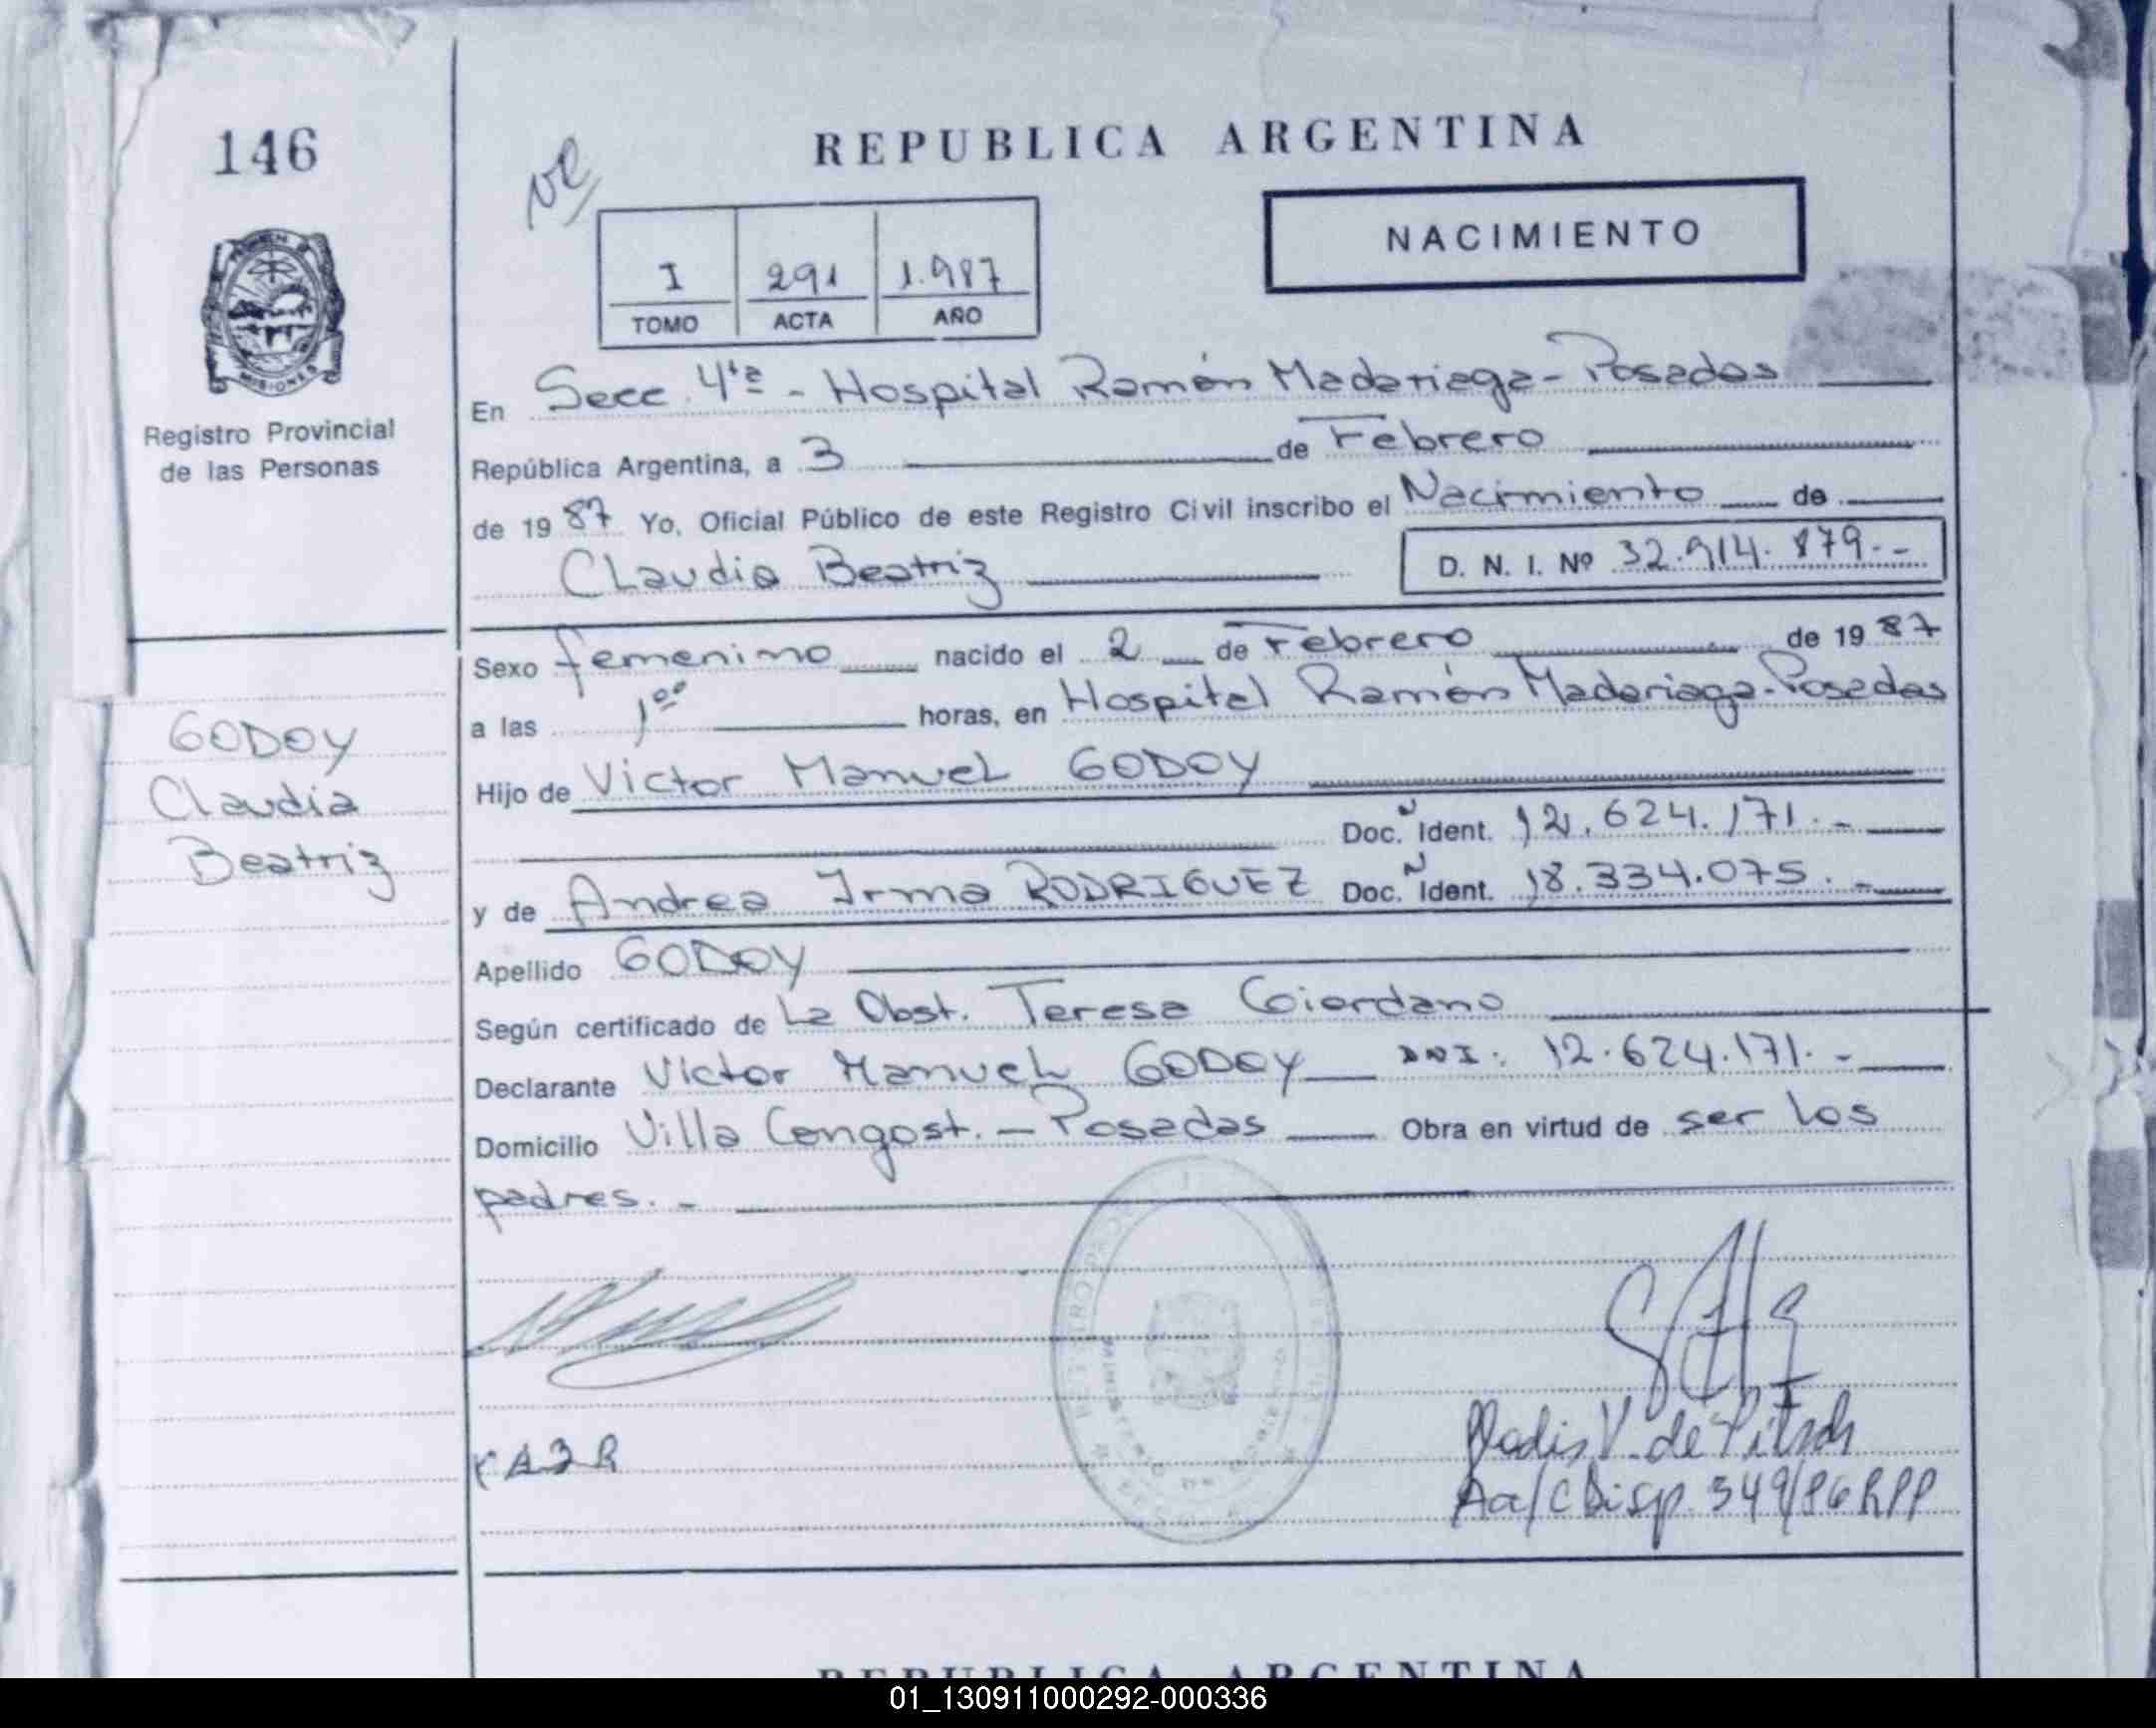 146
REPUBLICA ARGENTINA
NACIMIENTO
I 291 1.987
TOMO ACTA AÑO
MISIONES
Registro Provincial
de las Personas
En Secc. 4ta - Hospital Ramón Madariaga - Posadas
República Argentina, a 3 de Febrero
de 19 87 Yo, Oficial Público de este Registro Civil inscribo el Nacimiento de
Claudia Beatriz D. N. I. Nº 32.914.879.-
Sexo femenino nacido el 2 de Febrero de 19 87
a las 1ºº horas, en Hospital Ramón Madariaga-Posadas
GODOY
Claudia
Beatriz
Hijo de Victor Manuel GODOY
Doc. Ident. 12.624.171.-
y de Andrea Irma RODRIGUEZ Doc. Ident. 18.334.075.-
Apellido GODOY
Según certificado de La Obst. Teresa Giordano
Declarante Victor Manuel GODOY DNI: 12.624.171.-
Domicilio Villa Congost. - Posadas Obra en virtud de ser los
padres.-
V. de Pitsch
A a/c Disp. 349/86 RPP
REPUBLICA ARGENTINA
01_130911000292-000336